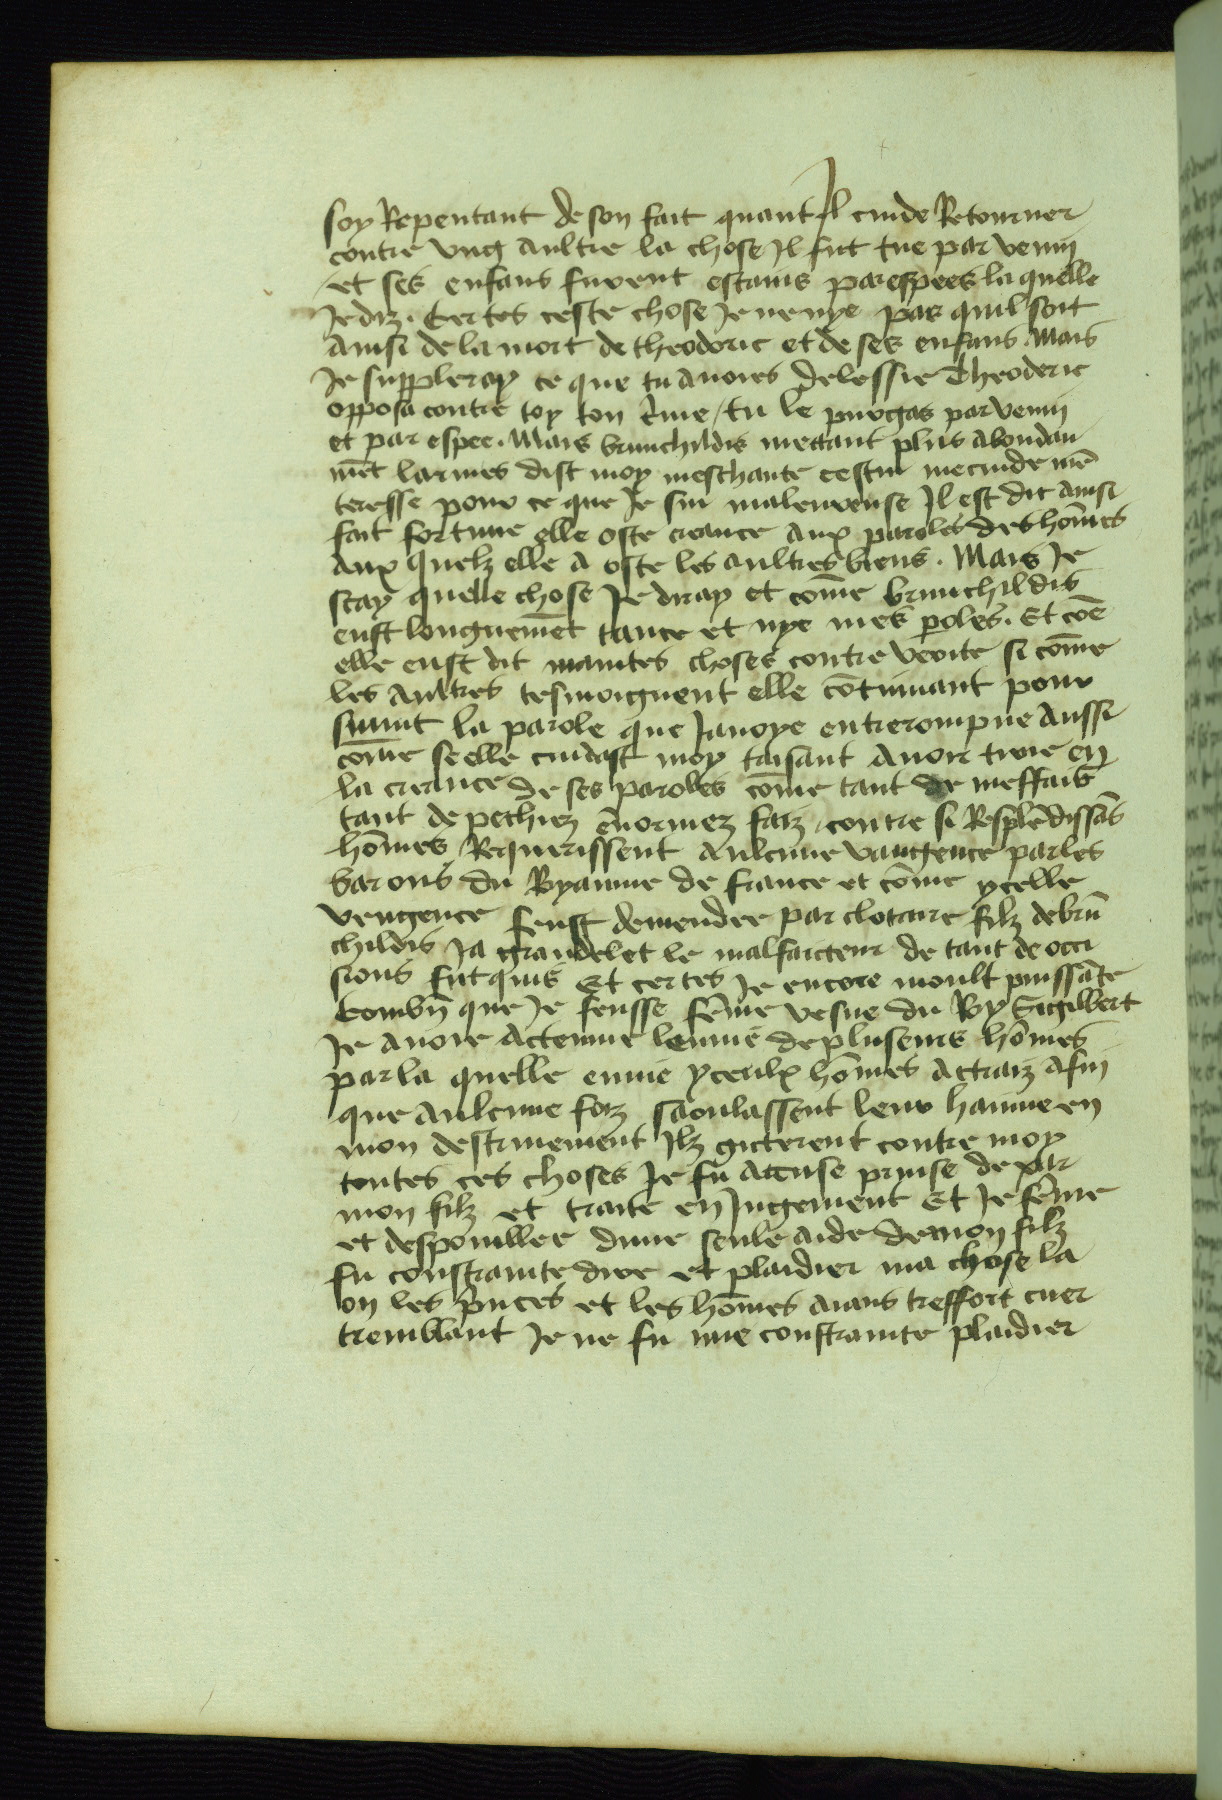 soy Repentant de son fait quant Il cuide Retourner
contre vng aultre la chose Il fut tue par venin
et ses enfans furent estains par espees la quelle
Je diz. Certes ceste chose Je ne nye pas quil soit
ainsi de la mort de theodoric et de ses enfans Mais
Je suppleray ce que tu auoies delessie Theoderic
opposa contre toy ton c͂me / tu le purgas par venin
et par espee. Mais brunchildis mettant plus abondan
mēt larmes dist moy meschante cestui me cuide mē
teresse pour ce que Je sui maleureuse Il est dit ainsi
fait fortune elle oste creance aux paroles des hōmes
aux quelz elle a oste les aultres biens. Mais Je
scay quelle chose Je diray et cōme brunchildis
eust longuemēt tance et nye mes p̄oles. Et cōe
elle eust dit maintes choses contre verite si cōme
les aultres tesmoignent elle cōtinuant pour
suiuit la parole que Jauoye entrerompue Aussi
cōme se elle cuidast moy taisant Auoir tiree en
la creance de ses paroles cōme tant de meffais
tant de pechiez ēnormez faiz contre si Resplēdissās
hōmes Requerissent Aulcune vangence par les
barons du Royaume de france et cōme ycelle
vengence feust demendee par clotaire filz de brū
childis Ja grandelet le malfaicteur de tant de occi
sions fut quis Et certes Je encore moult puissāte
combn̄ que Je feusse fēme vesue du Roy Sigilbert
Je auoie Actenue lenuie de pluseurs hōmes
par la quelle enuie yceulx hōmes Actraiz Afin
que aulcune foiz saoulassent leur hainne en
mon destruiement Ilz gicterent contre moy
toutes ces choses Je fu accuse prinse de par
mon filz et traite en Jugement Et Je fēme
et despoullee dune seule aide de mon filz
fu constrainte dire et plaidier ma chose la
ou les p̄nces et les hōmes aians tresfort cuer
tremblant Je ne fu mie constrainte plaidier